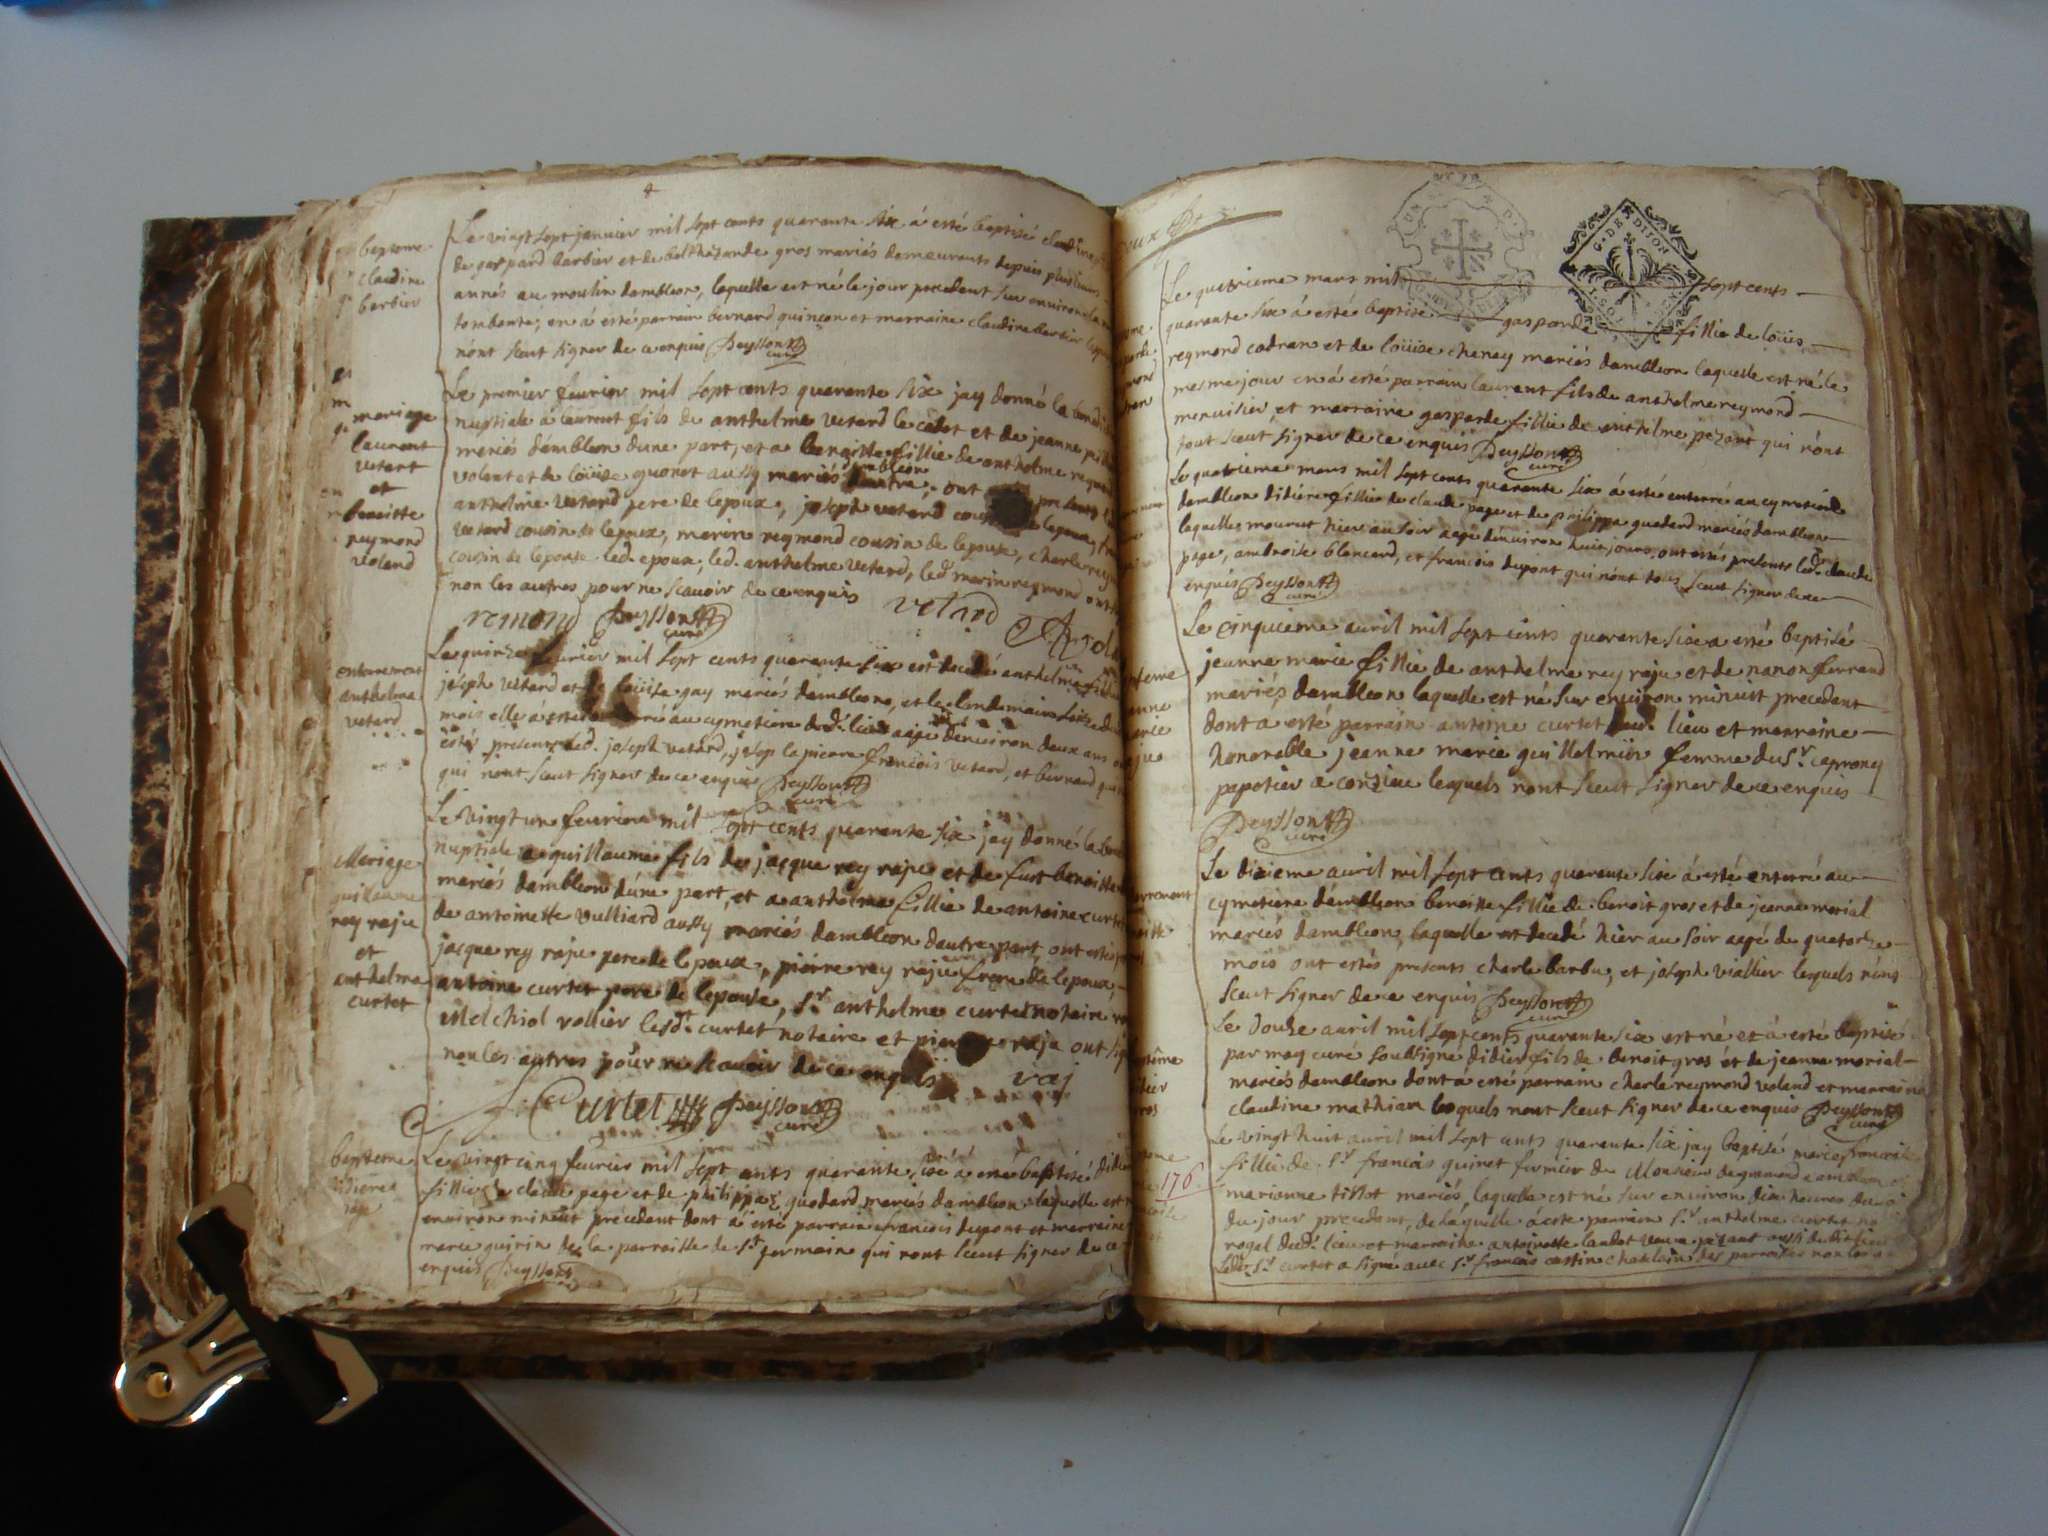 bapteme
claudine
barbier
Le vingt sept janvier mil sept cents quarante six á esté baptisé claudine
de gaspard barbier et de balthazarde gros mariés demeurants depuis plusieurs
annés au moulin dambleon, laquelle est né le jour precedent sur environ la
tombante; en á esté parrain bernard quinson et marraine claudine barbier
nónt sceut signer de ce enquis Deyssont curé
mariage
laurent
vetart
et
benoitte
reymond
voland
Le premier fevrier mil sept cents quarante six jay donné la
nuptiale á laurent fils de anthelme vetard le cadet et de jeanne
mariés dambleon dune part, et a benoitte fillie de anthelme
volant et de loüise quonet aussy mariés dambleon ont
anthelme vetard pere de lepoux, joseph vetard de lepoux,
vetard cousin de lepoux, marin reymond cousin de lepouse, charle
cousin de lepouse led. epoux, led. anthelme vetard, led. marin reymond ont
non les autres pour ne scavoir de ce enquis
remond Deyssont curé vetard
enterrement
anthelma
vetard
Le quinze fevrier mil sept cents quarante six est decedé anthelma
joseph vetard et de loüise gay mariés dambleon, et le lendemain
mois elle á esté au cymetiere dud. lieu aagé denviron deux ans
estés presents led. joseph vetard, josep lapierre francois vetard, et bernard
qui nont sceut signer de ce enquis Deyssont curé
Mariage
guillaume
rey raju
et
anthelma
curtet
Le vingt un fevrier mil sept cents quarante six jay donné la
nuptiale a guillaume fils de jacque rey raju et de
mariés dambleon dúne part, et a anthelma fillie de antoine curtet
de antoinette vulliard aussy mariés dambleon dautre part, ont estés
jacque rey raju pere de lepoux, pierre rey raju frere de lepoux,
antoine curtet pere de lepouse, sr. anthelme curtet notaire
Melchiol vollier lesdt. curtet notaire et raju ont
non les autres pour ne scavoir de ce enquis
Curtet Deyssont curé raj
bapteme
didiere
page
Le vingt cinq fevrier mil sept cents quarante six á esté baptisé
fillie de claude page et de philippa quodard mariés dambleon laquelle est
environ minuit precedent dont á esté parrain francois dupont et marraine
marie guirin de la parroisse de st germain qui nont sceut signer de ce
enquis Deyssont
G. DE DIJON
Le quatrieme mars mil sept cents
quarante six á esté baptisé gasparde fillie de loüis
reymond cadran et de loüise cheney mariés dambleon laquelle est né le
mesme jour en á esté parrain laurent fils de anthelme reymond
menuisier et marraine gasparde fillie de anthelme pezant qui nónt
tout sceut signer de ce enquis Deyssont curé
Le quatrieme mars mil sept cents quarante six á esté enterré au cymetiere
dambleon didiere fillie de claude page et de philippa quodard mariés dambleon
laquelle mourut hier au soir aagé denviron huit jours, ont estés presents led. claude
page, ambroise blancard, et francois dupont qui nónt tous sceut signer de ce
enquis Deyssont curé
Le cinquieme auril mil sept cents quarante six a esté baptisé
jeanne marie fillie de anthelme rey raju et de nanon ferrand
mariés dambleon laquelle est né sur environ minuit precedent
dont a esté parrain antoine curtet dud. lieu et marraine
honorable jeanne marie guillelmier femme du sr. caprony
papetier a conzieu lesquels nont sceut signer de ce enquis
Deyssont curé
Le dixieme auril mil sept cents quarante six á esté enterré au
cymetiere dámbleon benoitte fillie de benoit gros et de jeanne morial
mariés dambleon, laquelle est decedé hier au soir aagé de quatorze
mois ont estés presents charle barbu, et joseph viallier lesquels nónt
sceut signer de ce enquis Deyssont curé
Le douze auril mil sept cents quarante six est né et á esté baptisé
par moy curé soubsigné didier fils de benoit gros et de jeanne morial
mariés dambleon dont á esté parrain charle reymond voland et marraine
claudine mathian lesquels nont sceut signer de ce enquis Deyssont curé
176
Le vingt huit auril mil sept cents quarante six jay baptisé marie francoise
fillie de sr. francois quinet fermier de Monsieur
marianne tissot mariés, laquelle est né sur environ dix heures du
du jour precedent, de laquelle á esté parrain sr. anthelme curtet
royal dud. lieu et marraine antoinette veuve pezant aussi dudit lieu
Ledt. sr. curtet a signé avec sr. francois chatelain des parroisses non les